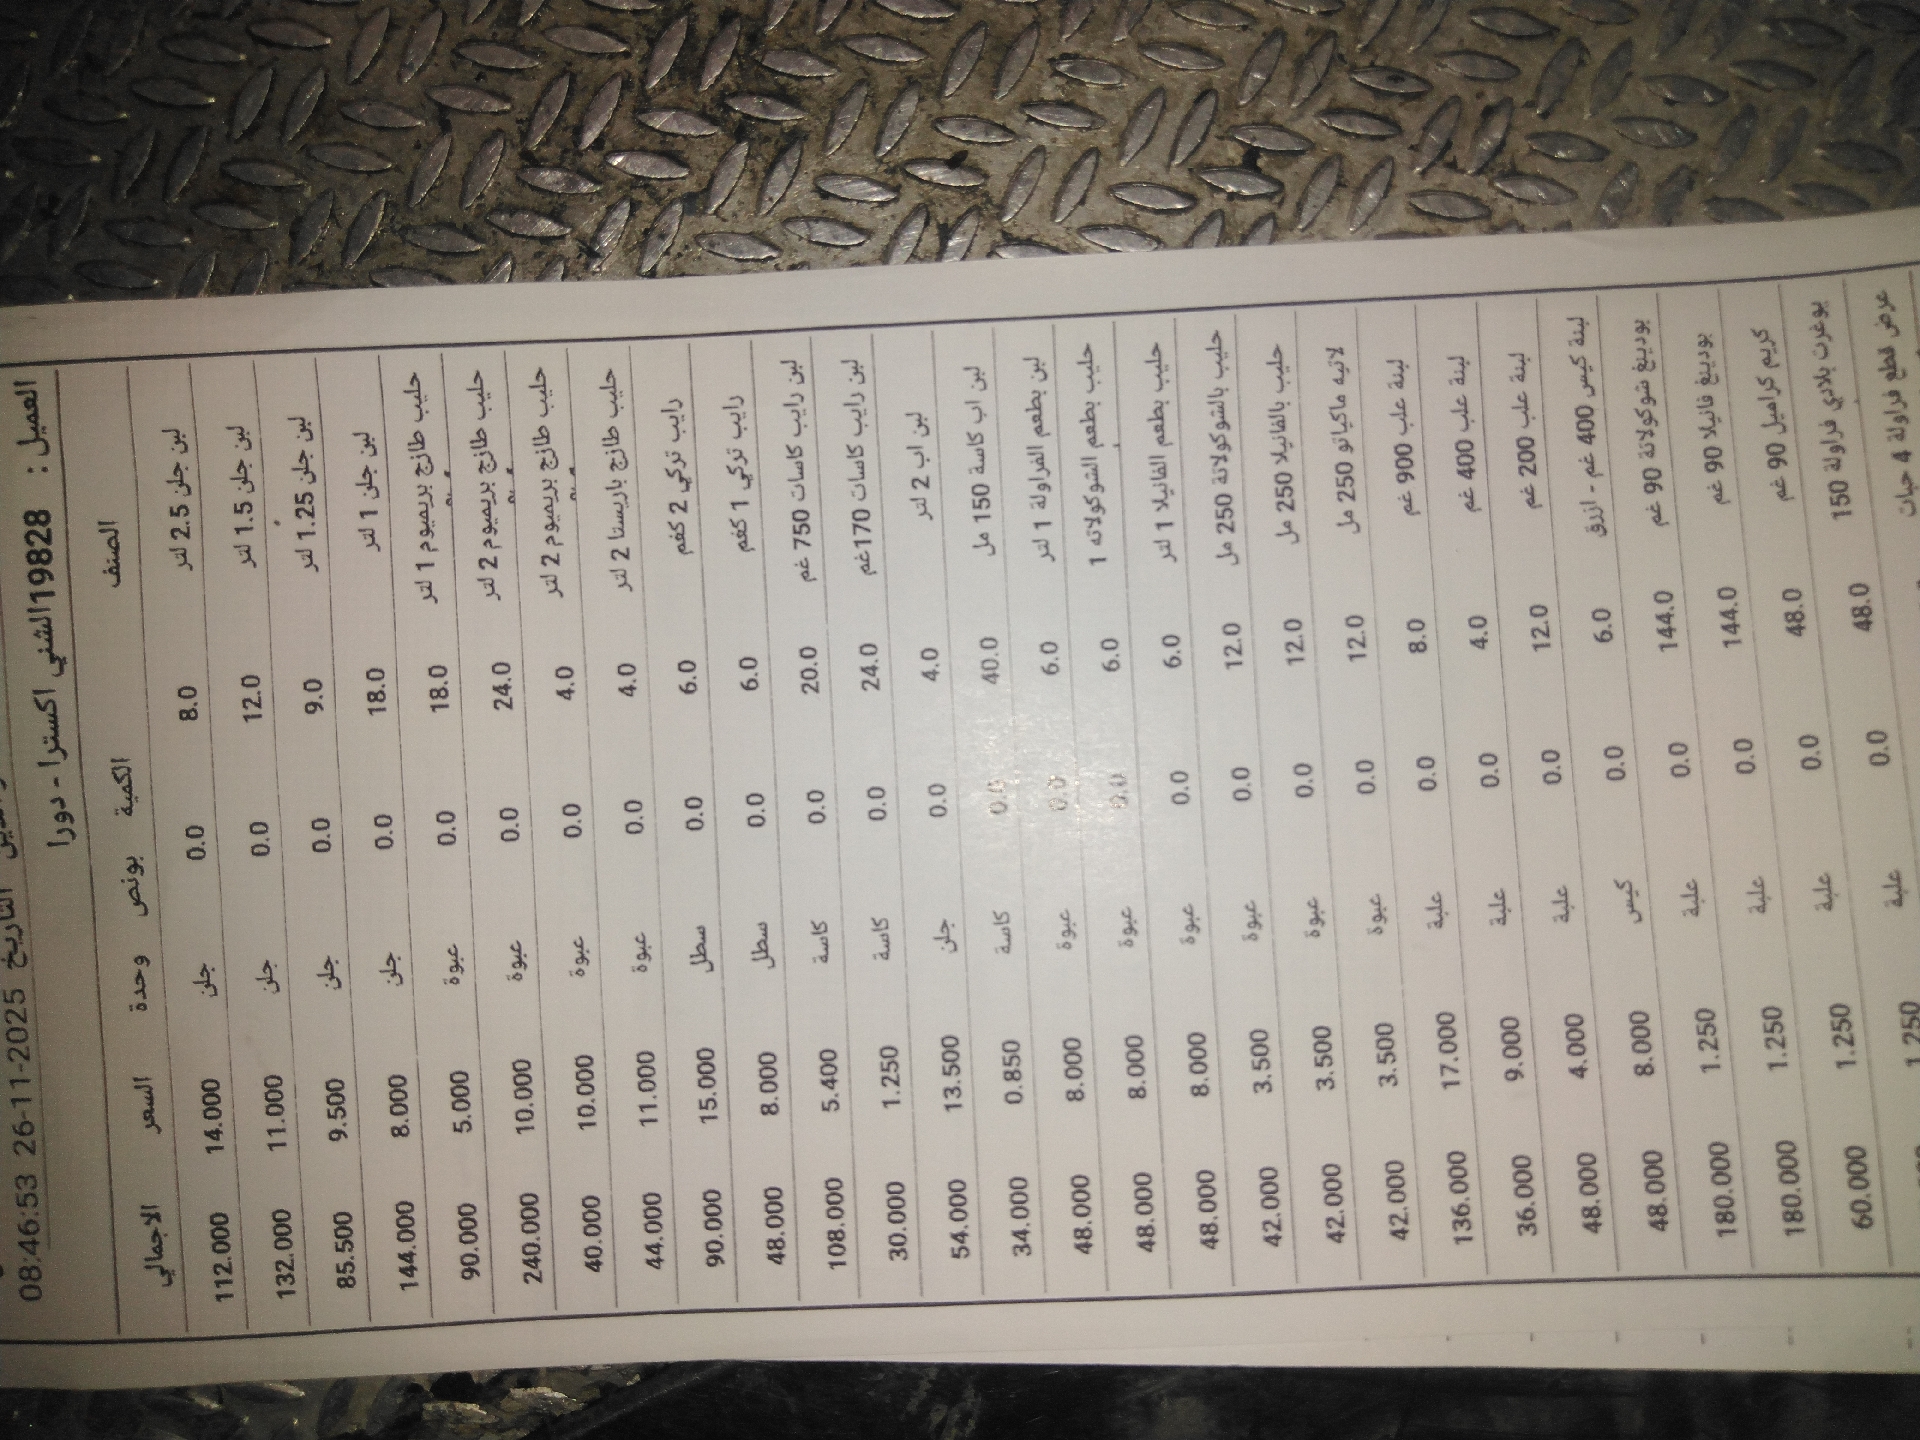 08:46:53 26-11-2025 التاريخ
العميل : 19828الشني اكسترا - دورا
الصنف الكمية بونص وحدة السعر الاجمالي
لبن جلن 2.5 لتر 8.0 0.0 جلن 14.000 112.000
لبن جلن 1.5 لتر 12.0 0.0 جلن 11.000 132.000
لبن جلن 1.25 لتر 9.0 0.0 جلن 9.500 85.500
لبن جلن 1 لتر 18.0 0.0 جلن 8.000 144.000
حليب طازج بريميوم 1 لتر 18.0 0.0 عبوة 5.000 90.000
حليب طازج بريميوم 2 لتر 24.0 0.0 عبوة 10.000 240.000
حليب طازج بريميوم 2 لتر 4.0 0.0 عبوة 10.000 40.000
حليب طازج باريستا 2 لتر 4.0 0.0 عبوة 11.000 44.000
رايب تركي 2 كغم 6.0 0.0 سطل 15.000 90.000
رايب تركي 1 كغم 6.0 0.0 سطل 8.000 48.000
لبن رايب كاسات 750 غم 20.0 0.0 كاسة 5.400 108.000
لبن رايب كاسات 170غم 24.0 0.0 كاسة 1.250 30.000
لبن اب 2 لتر 4.0 0.0 جلن 13.500 54.000
لبن اب كاسة 150 مل 40.0 0.0 كاسة 0.850 34.000
لبن بطعم الفراولة 1 لتر 6.0 0.0 عبوة 8.000 48.000
حليب بطعم الشوكولاته 1 6.0 0.0 عبوة 8.000 48.000
حليب بطعم الفانيلا 1 لتر 6.0 0.0 عبوة 8.000 48.000
حليب بالشوكولاتة 250 مل 12.0 0.0 عبوة 3.500 42.000
حليب بالفانيلا 250 مل 12.0 0.0 عبوة 3.500 42.000
لاتيه ماكياتو 250 مل 12.0 0.0 عبوة 3.500 42.000
لبنة علب 900 غم 8.0 0.0 علبة 17.000 136.000
لبنة علب 400 غم 4.0 0.0 علبة 9.000 36.000
لبنة علب 200 غم 12.0 0.0 علبة 4.000 48.000
لبنة كيس 400 غم - ازرق 6.0 0.0 كيس 8.000 48.000
بودينغ شوكولاتة 90 غم 144.0 0.0 علبة 1.250 180.000
بودينغ فانيلا 90 غم 144.0 0.0 علبة 1.250 180.000
كريم كراميل 90 غم 48.0 0.0 علبة 1.250 60.000
يوغرت بلادي فراولة 150 48.0 0.0 علبة 1.250
عرض قطع فراولة 4 حبات